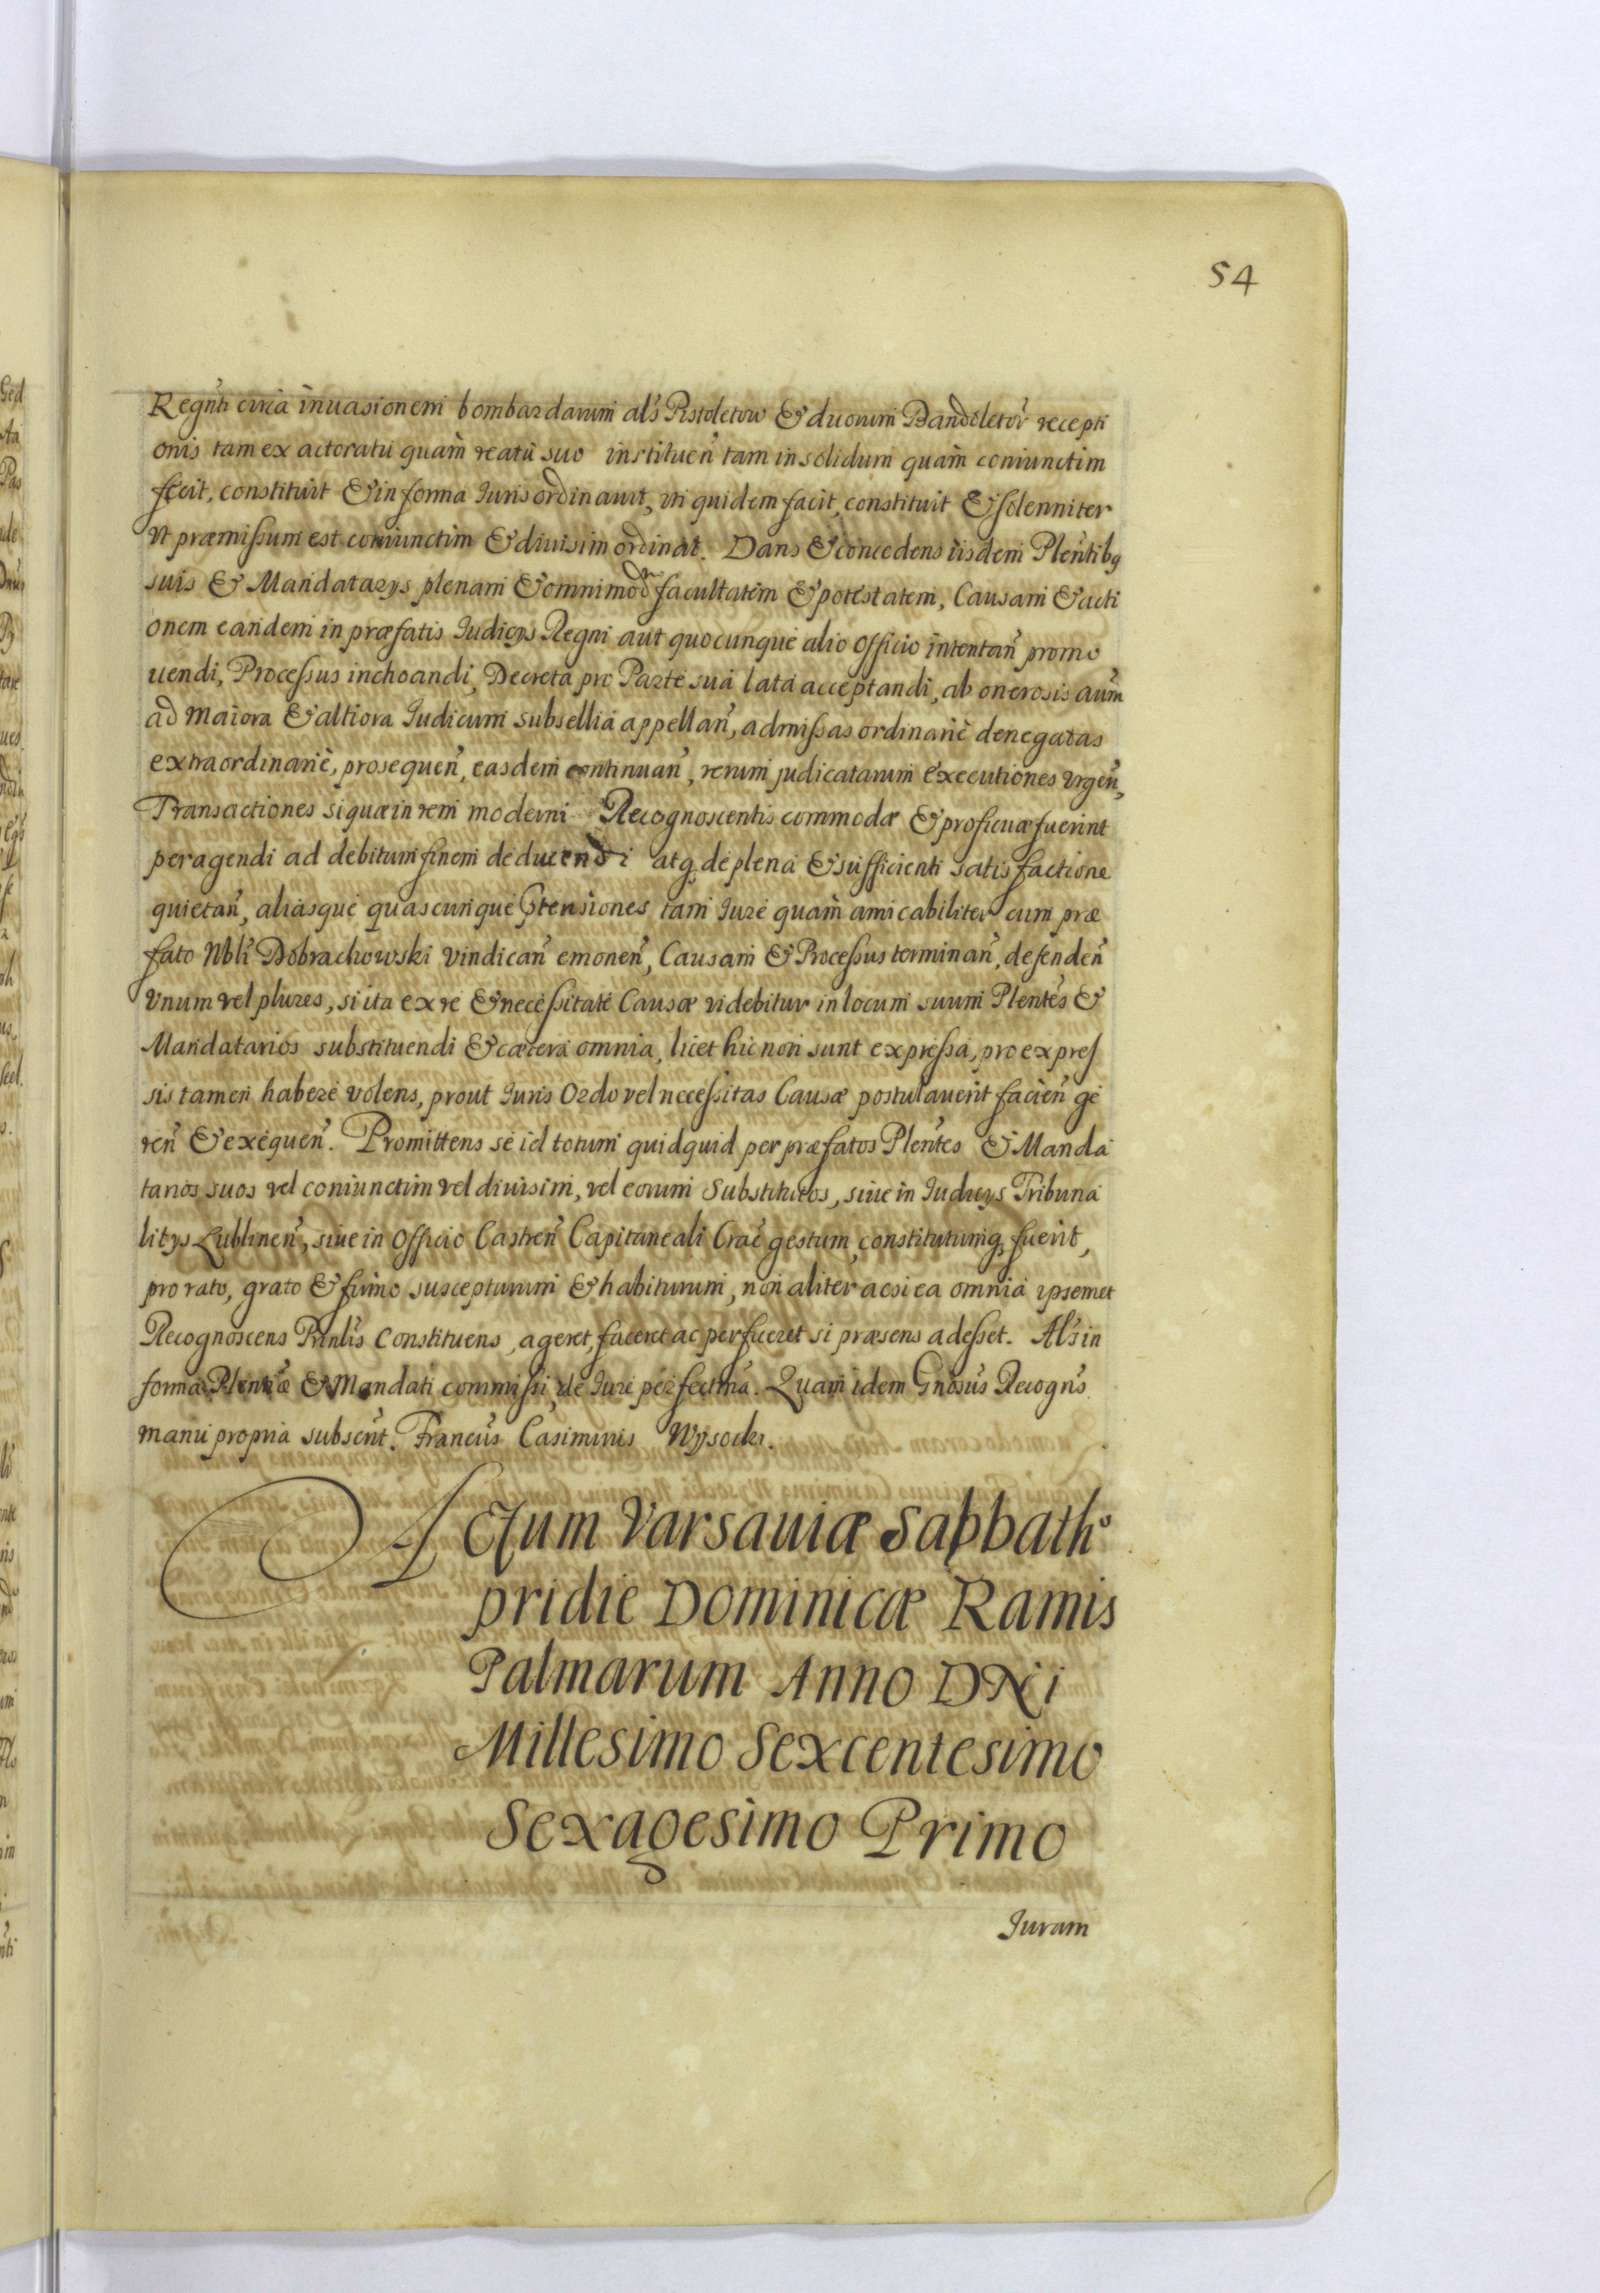 54
Regñti circa inuasionem bombardarum als Pistoletow & duorum Bandoletor recepti
onis tam ex actoratu quam reatu suo instituen̄ tam insolidum quam coniunctim
fecit, constituit & in forma Iuris ordinauit, vti quidem facit, constituit & solenniter
vt præmissum est coniunctim & diuisim ordinat. Dans & concedens iisdem Plentibq
suis & Mandatarys plenam & omnimodā facultatem & potestatem, Causam & acti
onem eandem in præfatis Iudicys Regni aut quocunque alio officio intentan̄ promo
uendi, Processus inchoandi, Decreta pro Parte sua lata acceptandi, ab onerosis aūm
ad maiora & altiora Iudicum subsellia appellan̄, admissas ordinariè denegatas
extraordinariè, prosequen̄, easdem continuan̄, rerum judicatarum executiones vrgen̄,
Transactiones si quæ in rem moderni Recognoscentis commodæ & proficuæ fuerint
peragendi ad debitum finem deducendi atq, de plena & sufficienti satisfactione
quietan̄, aliasque quascunque ptensiones tam Iure quam amicabiliter cum præ
fato Nbli Dobrachowski vindican̄ emonen̄, Causam & Processus terminan̄, defenden̄
Vnum vel plures, si ita ex re & necessitate Causæ videbitur in locum suum Plentes &
Mandatarios substituendi & cætera omnia, licet hic non sunt expressa, pro expres
sis tamen habere volens, prout Iuris Ordo vel necessitas Causæ postulauerit facien̄ ge
ren̄ & exequen̄. Promittens se id totum quidquid per præfatos Plentes & Manda
tarios suos vel coniunctim vel diuisim, vel eorum Substitutos, siue in Iudicys Tribuna
litys Lublinen̄, siue in Officio Castren̄ Capitaneali Crac̄ gestum, constitutumq, fuerit,
pro rato, grato & firmo suscepturum & habiturum, non aliter acsi ea omnia ipsemet
Recognoscens Prinlis Constituens, ageret, faceret ac perficeret si præsens adesset. Als in
forma Plentiæ & Mandati commissi, de Iure perfectma. Quam idem Gnosus Recogns
manu propria subscrit. Francus Casimirus Wysocki.
Actum Varsauiæ Sabbatho
pridie Dominicæ Ramis
Palmarum Anno DNi
Millesimo Sexcentesimo
Sexagesimo Primo
Iuram